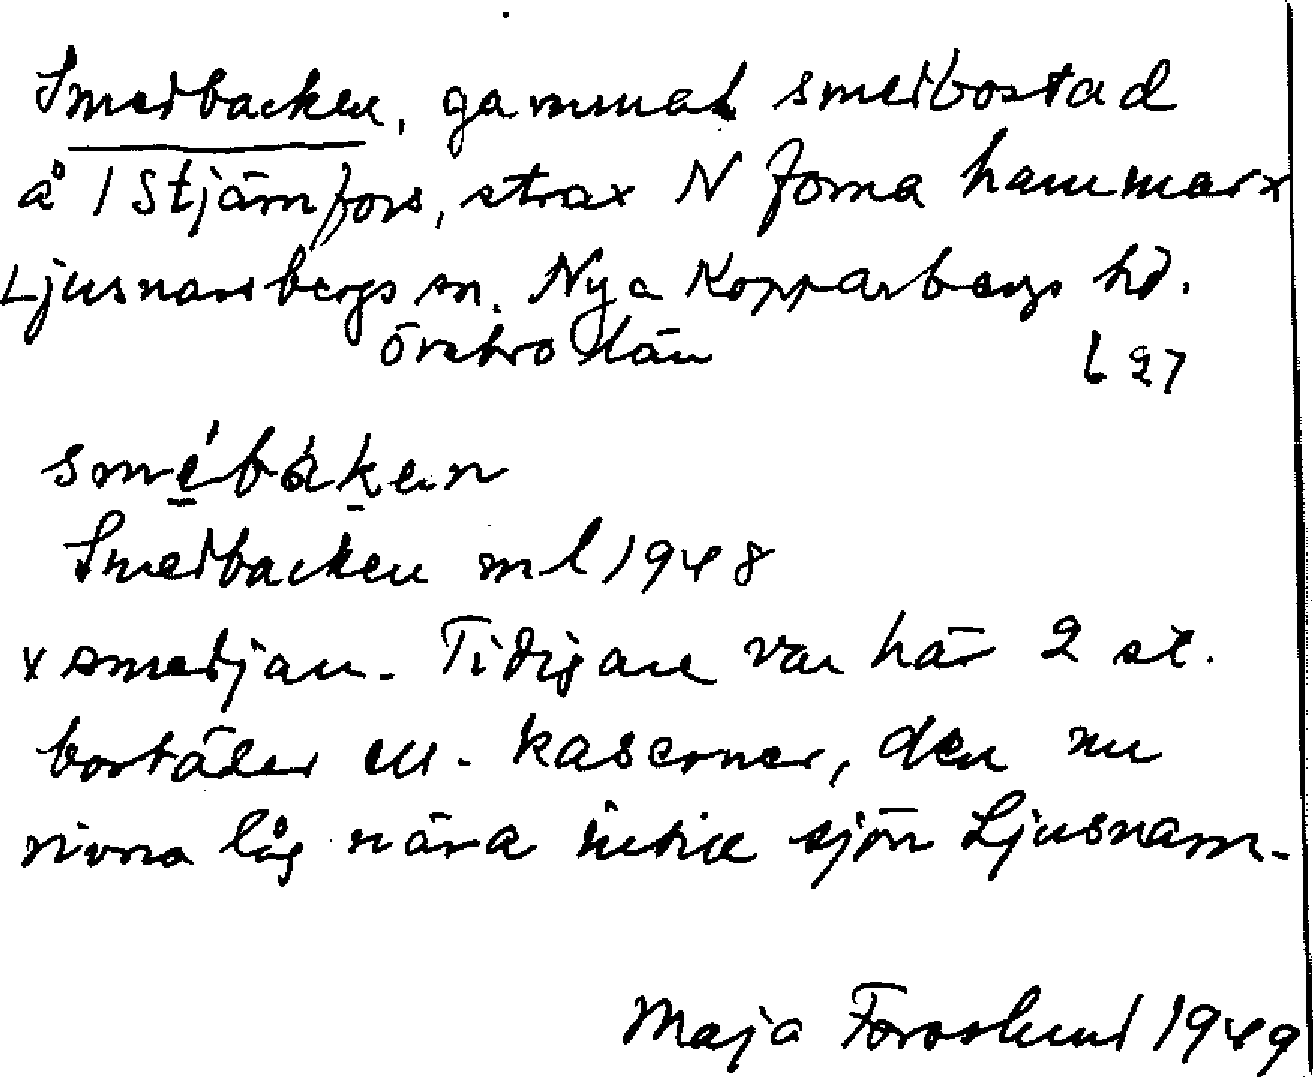 Smedbacken, gammal smedbostad
å 1 Stjärnfors, strax N forna hammarx
Ljusnarsbergs sn. Nya Kopparbergs hd.
Örebro län b 27
smébàken
Smedbacken ml 1948
x smedjan. Tidigare var här 2 st.
bostäder ell. kaserner, den nu
rivna låg nära intill sjön Ljusnarn.
Maja Forsslund 1949